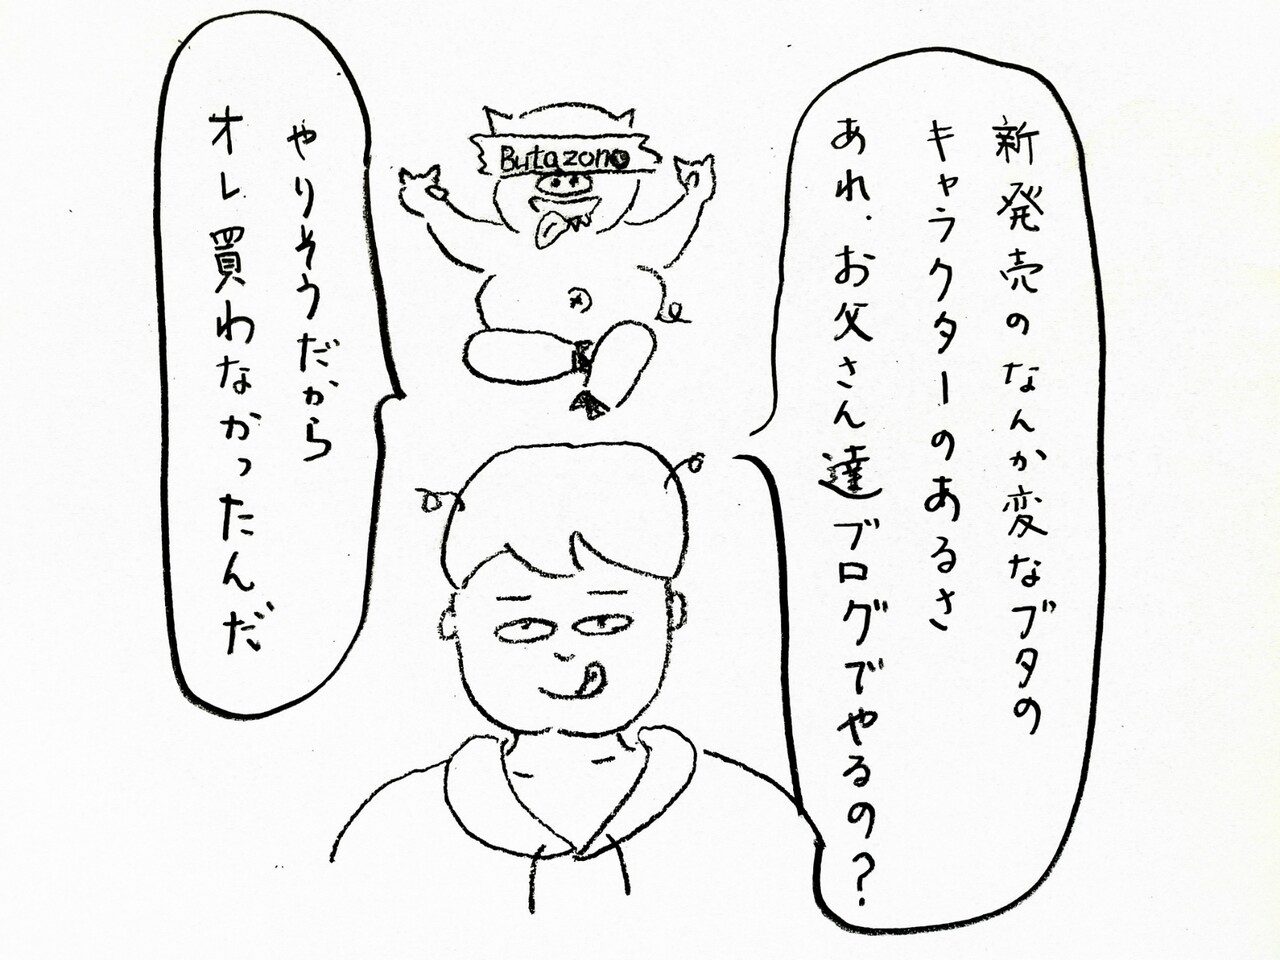 新発売のなんか変なブタの
キャラクターのあるさ
あれ、お父さん達ブログでやるの?
Butazone
やりそうだから
オレ買わなかったんだ